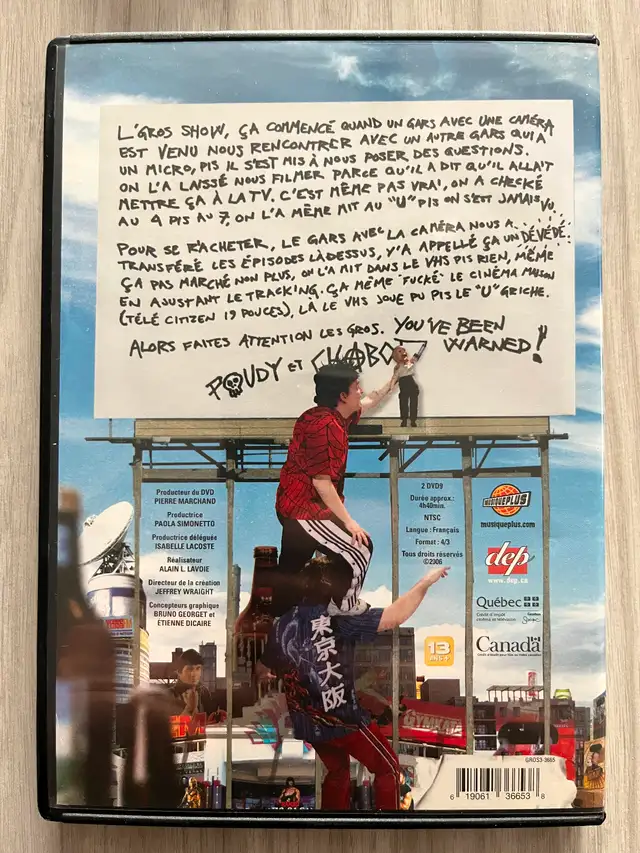 L'GROS SHOW, ÇA COMMENCÉ QUAND UN GARS AVEC UNE CAMÉRA
EST VENU NOUS RENCONTRER AVEC UN AUTRE GARS QUI A
UN MICRO, PIS IL S'EST MIS À NOUS POSER DES QUESTIONS.
ON L'A LAISSÉ NOUS FILMER PARCE QU'IL A DIT QU'IL ALLAIT
METTRE ÇA À LA TV. C'EST MÊME PAS VRAI, ON A CHECKÉ
AU 4 PIS AU 7, ON L'A MÊME MIT AU "U" PIS ON S'EST JAMAIS VU.
POUR SE RACHETER, LE GARS AVEC LA CAMÉRA NOUS A
TRANSFÉRÉ LES ÉPISODES LÀDESSUS, Y'A APPELLÉ ÇA UN DÉVÉDÉ.
ÇA PAS MARCHÉ NON PLUS, ON L'A MIT DANS LE VHS PIS RIEN, MÊME
EN AJUSTANT LE TRACKING. ÇA MÊME "FUCKÉ" LE CINÉMA MAISON
(TÉLÉ CITIZEN 19 POUCES), LÀ LE VHS JOUE PU PIS LE "U" GRICHE.
ALORS FAITES ATTENTION LES GROS. YOU'VE BEEN
WARNED!
POUDY ET CHABOT
Producteur du DVD
PIERRE MARCHAND
Productrice
PAOLA SIMONETTO
Productrice déléguée
ISABELLE LACOSTE
Réalisateur
ALAIN L. LAVOIE
Directeur de la création
JEFFREY WRAIGHT
Concepteurs graphique
BRUNO GEORGET et
ÉTIENNE DICAIRE
2 DVD9
Durée approx.:
4h40min.
NTSC
Langue : Français
Format : 4/3
Tous droits réservés
©2006
MUSIQUEPLUS
musiqueplus.com
dep
www.dep.ca
Québec
Canada
13
ANS +
東京大阪
GYMKATA
GROS3-3665
6 19061 36653 8